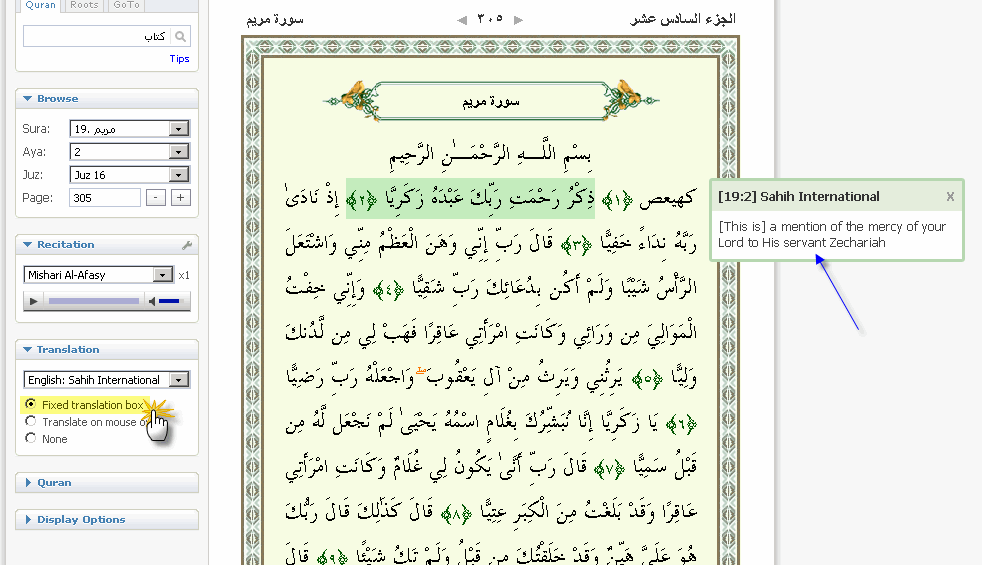 Quran Roots GoTo
كتاب
Tips
Browse
Sura: 19. مريم
Aya: 2
Juz: Juz 16
Page: 305 - +
Recitation
Mishari Al-Afasy x1
Translation
English: Sahih International
Fixed translation box
Translate on mouse
None
Quran
Display Options
الجزء السادس عشر ٣٠٥ سورة مريم
سورة مريم
بِسْمِ اللَّـهِ الرَّحْمَـٰنِ الرَّحِيمِ
كهيعص ﴿١﴾ ذِكْرُ رَحْمَتِ رَبِّكَ عَبْدَهُ زَكَرِيَّا ﴿٢﴾ إِذْ نَادَىٰ
رَبَّهُ نِدَاءً خَفِيًّا ﴿٣﴾ قَالَ رَبِّ إِنِّي وَهَنَ الْعَظْمُ مِنِّي وَاشْتَعَلَ
الرَّأْسُ شَيْبًا وَلَمْ أَكُن بِدُعَائِكَ رَبِّ شَقِيًّا ﴿٤﴾ وَإِنِّي خِفْتُ
الْمَوَالِيَ مِن وَرَائِي وَكَانَتِ امْرَأَتِي عَاقِرًا فَهَبْ لِي مِن لَّدُنكَ
وَلِيًّا ﴿٥﴾ يَرِثُنِي وَيَرِثُ مِنْ آلِ يَعْقُوبَ ۖ وَاجْعَلْهُ رَبِّ رَضِيًّا
﴿٦﴾ يَا زَكَرِيَّا إِنَّا نُبَشِّرُكَ بِغُلَامٍ اسْمُهُ يَحْيَىٰ لَمْ نَجْعَل لَّهُ مِن
قَبْلُ سَمِيًّا ﴿٧﴾ قَالَ رَبِّ أَنَّىٰ يَكُونُ لِي غُلَامٌ وَكَانَتِ امْرَأَتِي
عَاقِرًا وَقَدْ بَلَغْتُ مِنَ الْكِبَرِ عِتِيًّا ﴿٨﴾ قَالَ كَذَٰلِكَ قَالَ رَبُّكَ
هُوَ عَلَيَّ هَيِّنٌ وَقَدْ خَلَقْتُكَ مِن قَبْلُ وَلَمْ تَكُ شَيْئًا ﴿٩﴾ قَالَ
[19:2] Sahih International X
[This is] a mention of the mercy of your
Lord to His servant Zechariah